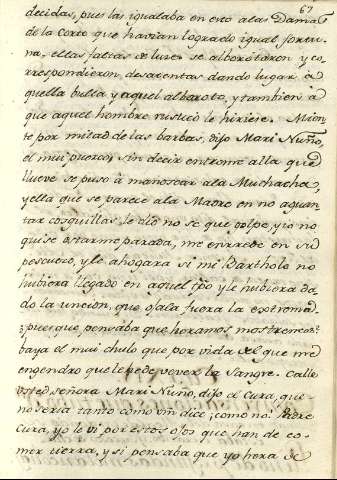 67
decidas, pues las igualaba en esto alas Damas
de la Corte que havian logrado igual fortu-
na, ellas faltas de luces se alborotaron y co-
rrespondieron desatentas dando lugar à
quella bulla y aquel alboroto, y tambien à
que aquel hombre rustico le hiriese. Mien-
te por mitad de las barbas, dijo Mari Nuño,
el mui puerco, sin decir entrome alla que
llueve se puso à manosear ala Muchacha,
y ella que se parece ala Madre en no aguan-
tar cosquillas le dió no se que golpe, yo no
quise estarme parada, me enrrede en su
pescuezo, y le ahogara si mi Bartholo no
hubiera llegado en aquel tpo y le hubiera da-
do la uncion, que ojala fuera la extremad.
pues que pensaba que heramos mostrencos?
baya el mui chulo que por vida del que me
engendro que le hede vever la Sangre. Calle
usted señora Mari Nuño, dijo el Cura, que
no seria tanto como vm dice ¿como no? Padre
Cura, yo le vi por estos ojos que han de co-
mer tierra, y si pensaba que yo hera de